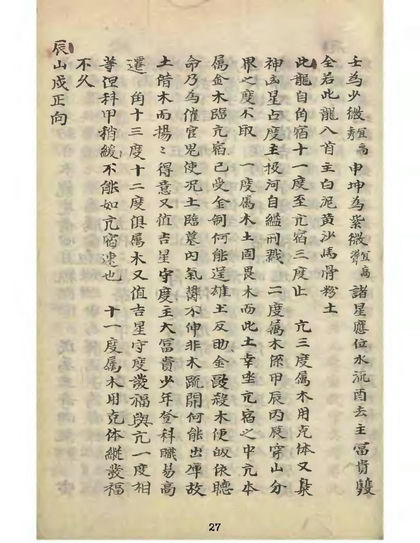 壬為少微㲀高 申坤為紫微㲀高 諸星應位水流酉去主富貴雙
全若此龍入首主白泥黃沙馬骨粉土
此龍自角宿十一度至亢宿三度止 亢三度屬木用克体又梟
神凶星占度主投河自縊刑戮 二度屬木係甲辰丙辰穿山分
界之度不取 一度屬木土固畏木而此土幸坐亢宿之中亢本
屬金木臨亢宿已受金制何能逞雄土反助金毀殺木便皈依聽
命乃為催官鬼使况土臨墓內氣濁不伸非木疏開何能出渾故
土借木而揚々得意又值吉星守度主大富貴少年登科職易高
遷 角十三度十二度俱屬木又值吉星守度發福與亢一度相
等但科甲稍緩不能如亢宿速也 十一度屬木用克体縱發福
不久
辰山戌正向
27